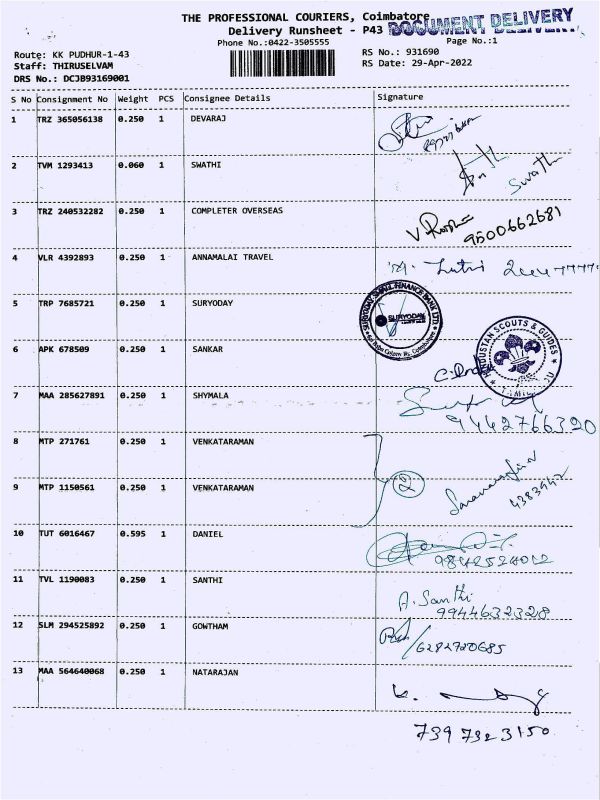 THE PROFESSIONAL COURIERS, Coimbatore
DOCUMENT DELIVERY
Delivery Runsheet - P43
DOCUMENT DELIVERY
Phone No.:0422-3505555
Page No.:1
Route: KK PUDHUR-1-43
RS No.: 931690
Staff: THIRUSELVAM
RS Date: 29-Apr-2022
DRS No.: DCJB93169001
S No Consignment No Weight PCS Consignee Details Signature
1 TRZ 365056138 0.250 1 DEVARAJ
2 TVM 1293413 0.060 1 SWATHI Swathi
3 TRZ 240532282 0.250 1 COMPLETER OVERSEAS
9500662681
4 VLR 4392893 0.250 1 ANNAMALAI TRAVEL
5 TRP 7685721 0.250 1 SURYODAY
SURYODAY SMALL FINANCE BANK LTD.
SURYODAY
6 APK 678509 0.250 1 SANKAR
HINDUSTAN SCOUTS & GUIDES
7 MAA 285627891 0.250 1 SHYMALA
9442766320
8 MTP 271761 0.250 1 VENKATARAMAN
2
9 MTP 1150561 0.250 1 VENKATARAMAN
4383942
10 TUT 6016467 0.595 1 DANIEL
9842524012
11 TVL 1190083 0.250 1 SANTHI A. Santhi
9944632328
12 SLM 294525892 0.250 1 GOWTHAM
6282720685
13 MAA 564640068 0.250 1 NATARAJAN
K.
739 7323150